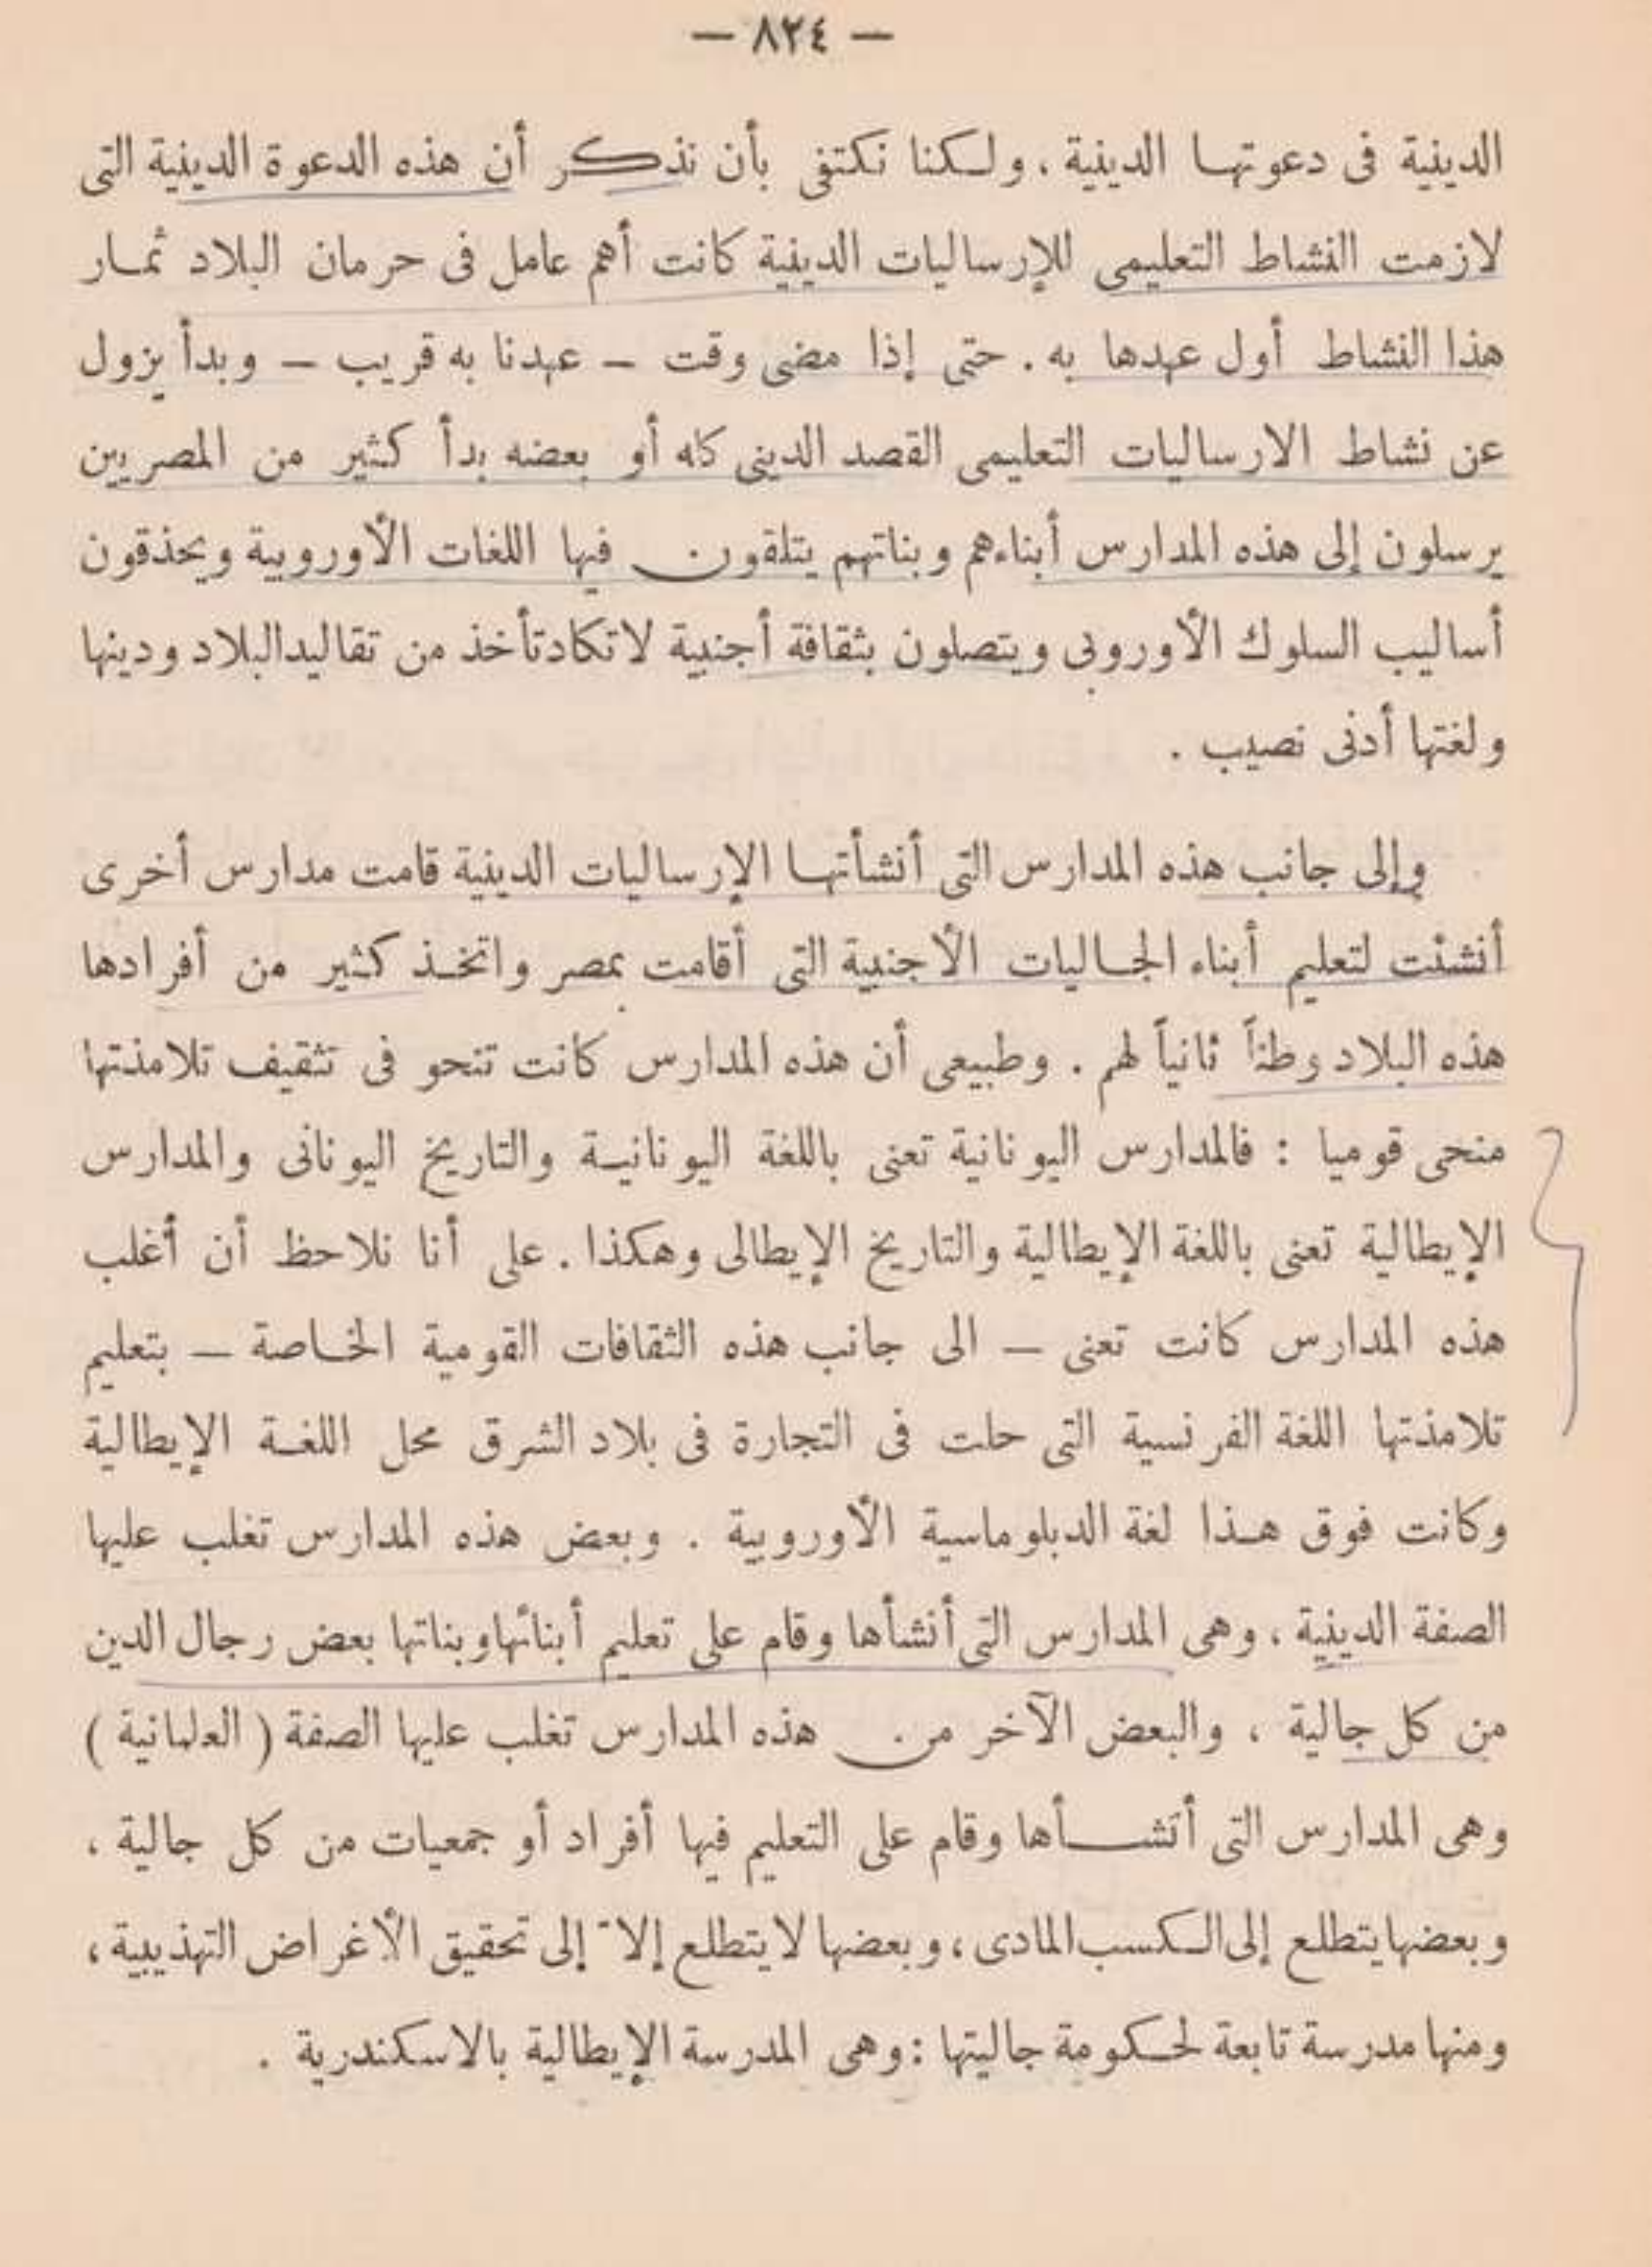 — ٨٢٤ —
الدينية فى دعوتها الدينية . ولكنا نكتفى بأن نذكر أن هذه الدعوة الدينية التى
لازمت النشاط التعليمى للإرساليات الدينية كانت أهم عامل فى حرمان البلاد ثمار
هذا النشاط أول عهدها به . حتى إذا مضى وقت – عهدنا به قريب – وبدأ يزول
عن نشاط الارساليات التعليمى القصد الدينى كله أو بعضه بدأ كثير من المصريين
يرسلون إلى هذه المدارس أبناءهم وبناتهم يتلقون فيها اللغات الأوروبية ويحذقون
أساليب السلوك الأوروبى ويتصلون بثقافة أجنبية لاتكادتأخذ من تقاليدالبلاد ودينها
ولغتها أدنى نصيب .
وإلى جانب هذه المدارس التى أنشأتها الإرساليات الدينية قامت مدارس أخرى
أنشئت لتعليم أبناء الجاليات الأجنبية التى أقامت بمصر واتخذ كثير من أفرادها
هذه البلاد وطناً ثانياً لهم . وطبيعى أن هذه المدارس كانت تنحو فى تثقيف تلامذتها
منحى قوميا : فالمدارس اليونانية تعنى باللغة اليونانية والتاريخ اليونانى والمدارس
الإيطالية تعنى باللغة الإيطالية والتاريخ الإيطالى وهكذا . على أنا نلاحظ أن أغلب
هذه المدارس كانت تعنى – الى جانب هذه الثقافات القومية الخاصة – بتعليم
تلامذتها اللغة الفرنسية التى حلت فى التجارة فى بلاد الشرق محل اللغة الإيطالية
وكانت فوق هذا لغة الدبلوماسية الأوروبية . وبعض هذه المدارس تغلب عليها
الصفة الدينية ، وهى المدارس التى أنشأها وقام على تعليم أبنائهاوبناتها بعض رجال الدين
من كل جالية ، والبعض الآخر من هذه المدارس تغلب عليها الصفة ( العلمانية )
وهى المدارس التى أنشأها وقام على التعليم فيها أفراد أو جمعيات من كل جالية ،
وبعضهايتطلع إلى الكسب المادى ، وبعضها لا يتطلع إلا إلى تحقيق الأغراض التهذيبية ،
ومنها مدرسة تابعة لحكومة جاليتها : وهى المدرسة الإيطالية بالاسكندرية .